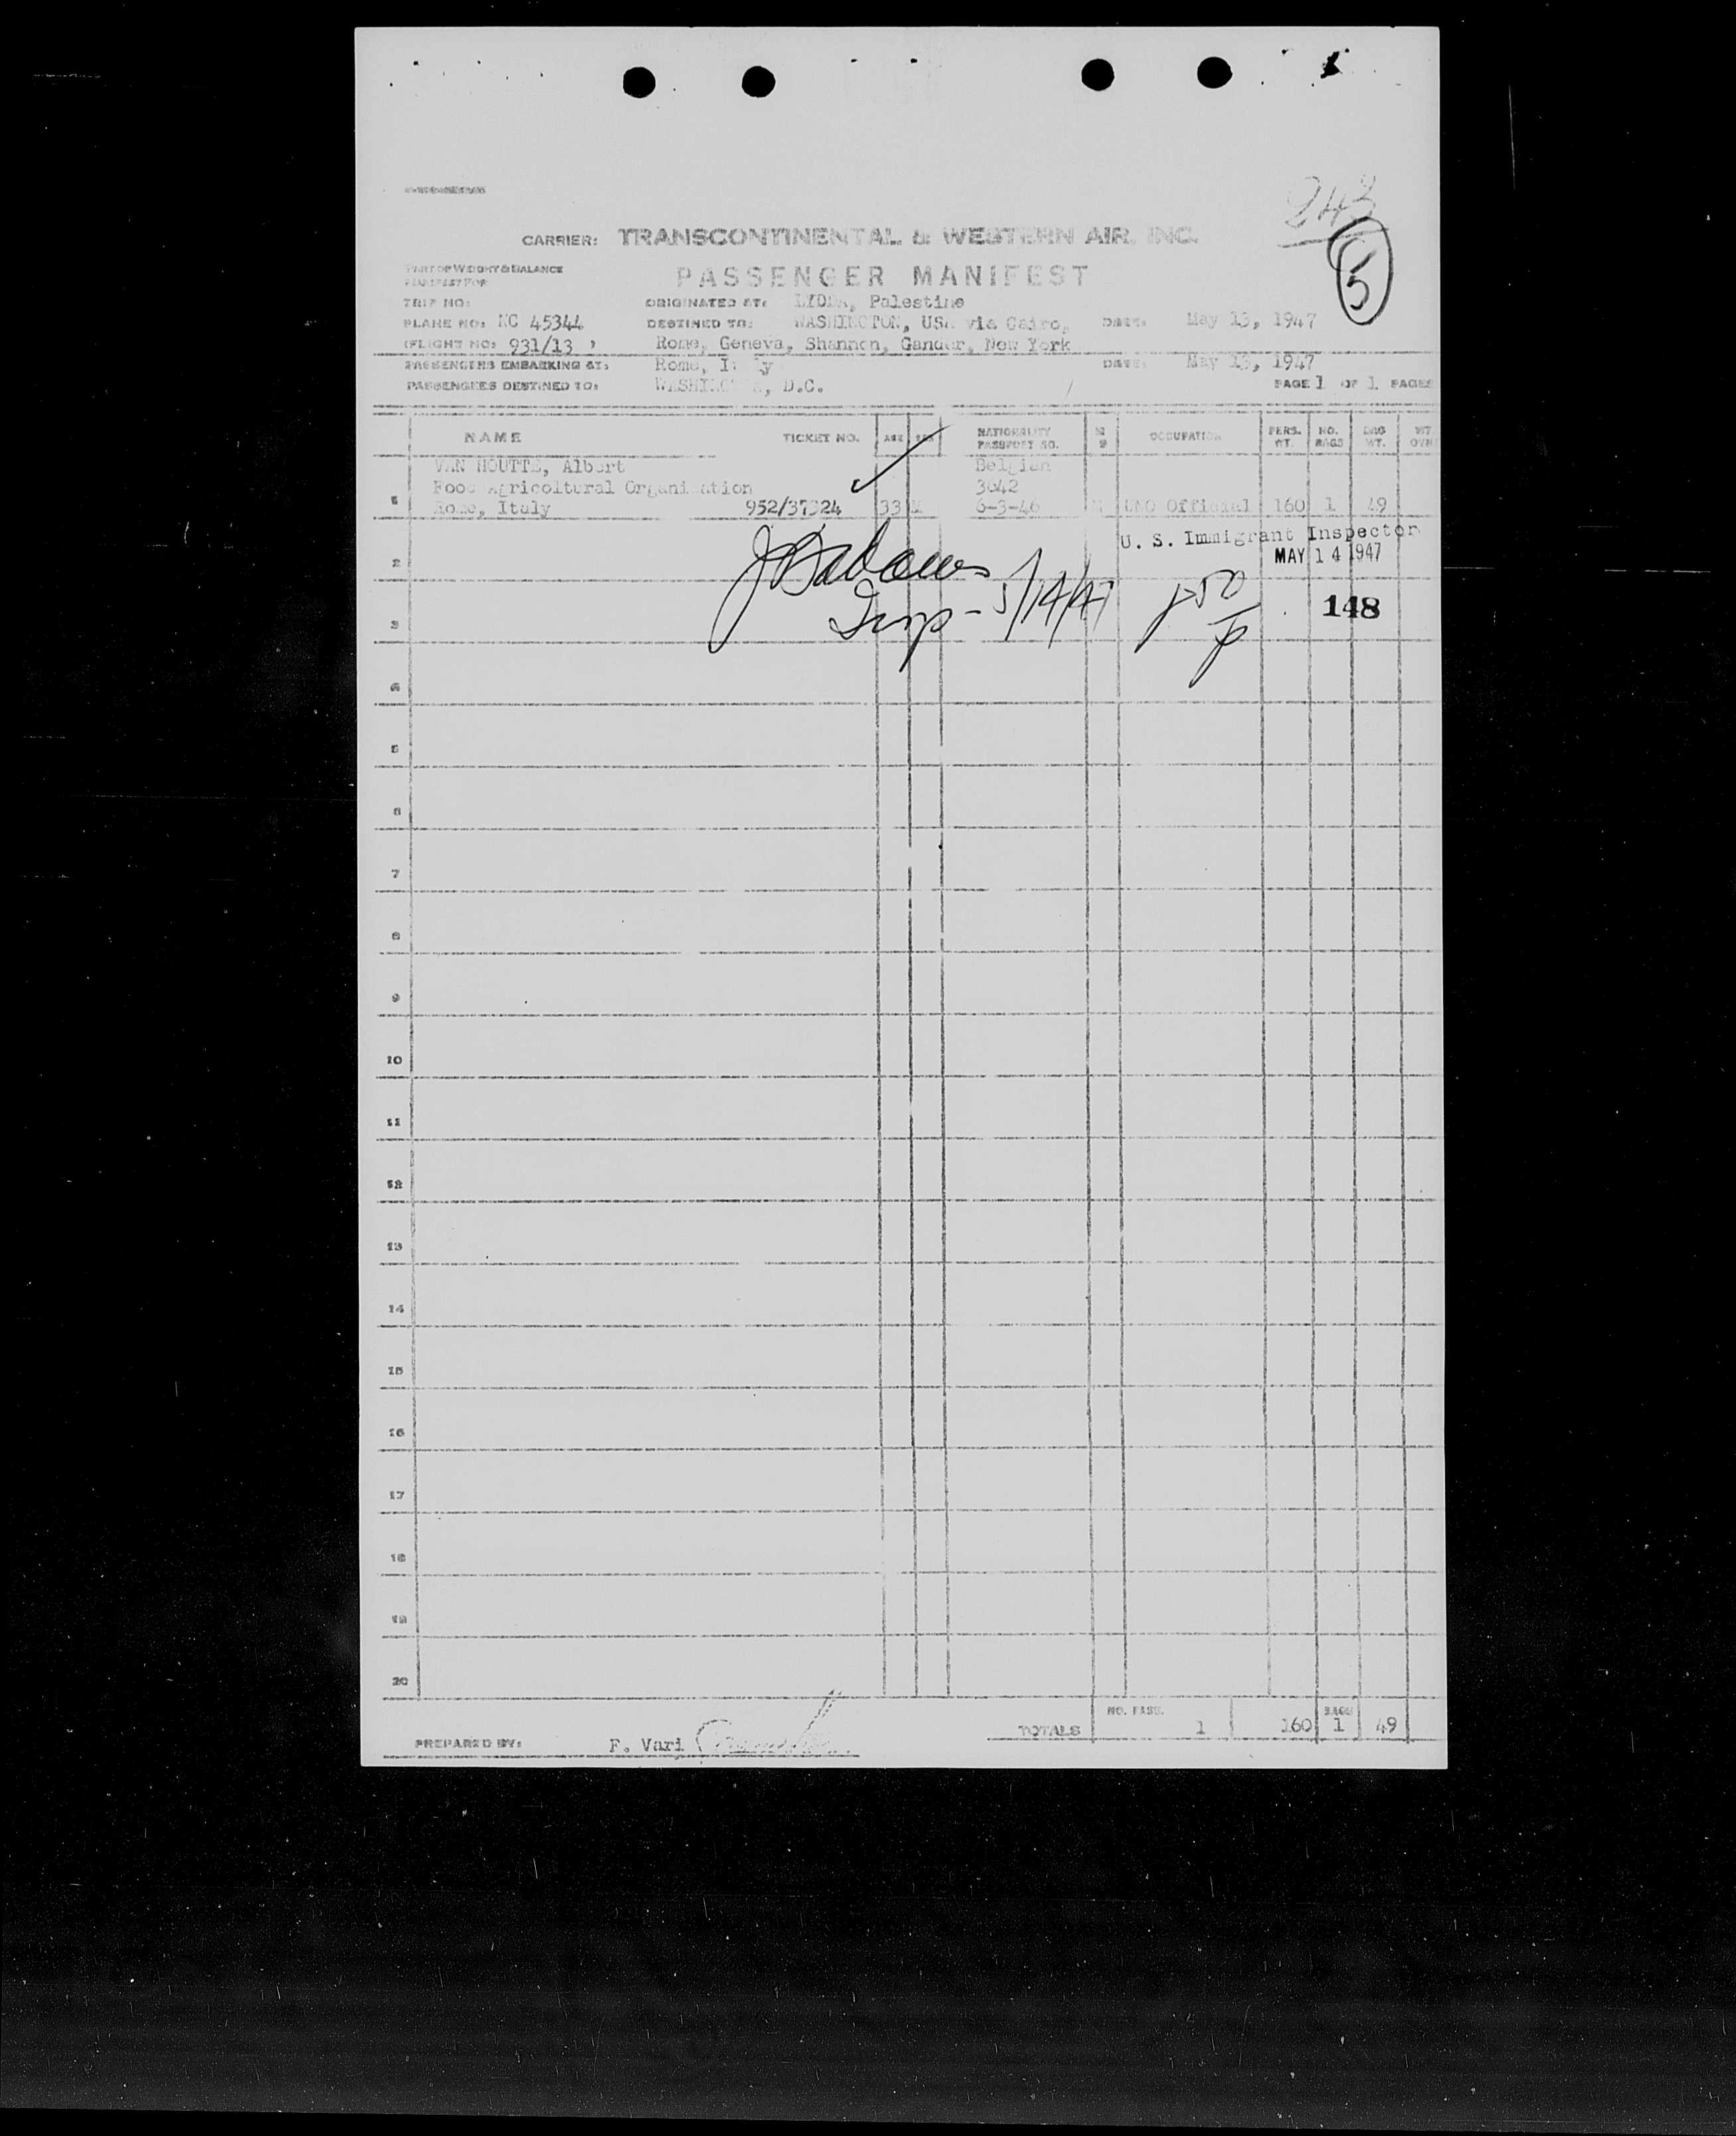 243
5
CARRIER: TRANSCONTINENTAL & WESTERN AIR, INC.
PART OF WEIGHT & BALANCE
MANIFEST FOR
PASSENGER MANIFEST
TRIP NO: ORIGINATED AT: LYDDA, Palestine
PLANE NO: NC 45344 DESTINED TO: WASHINGTON, USA via Cairo, DATE: May 13, 1947
(FLIGHT NO: 931/13 ) Rome, Geneva, Shannon, Gander, New York
PASSENGERS EMBARKING AT: Rome, Italy DATE: May 13, 1947
PASSENGERS DESTINED TO: WASHINGTON, D.C. PAGE 1 OF 1 PAGES
NAME TICKET NO. AGE SEX NATIONALITY PASSPORT NO. OCCUPATION PERS. WT. NO. BAGS BAG WT. WT
VAN HOUTTE, Albert Belgian
Food Agricoltural Organisation 3642
1 Rome, Italy 952/37324 33 M 6-3-46 M UNO Official 160 1 49
U. S. Immigrant Inspector
2 MAY 14 1947
Insp - 5/14/47
3 148
4
5
6
7
8
9
10
11
12
13
14
15
16
17
18
19
20
NO. PASS. BAGS
TOTALS 1 160 1 49
PREPARED BY: F. Vari